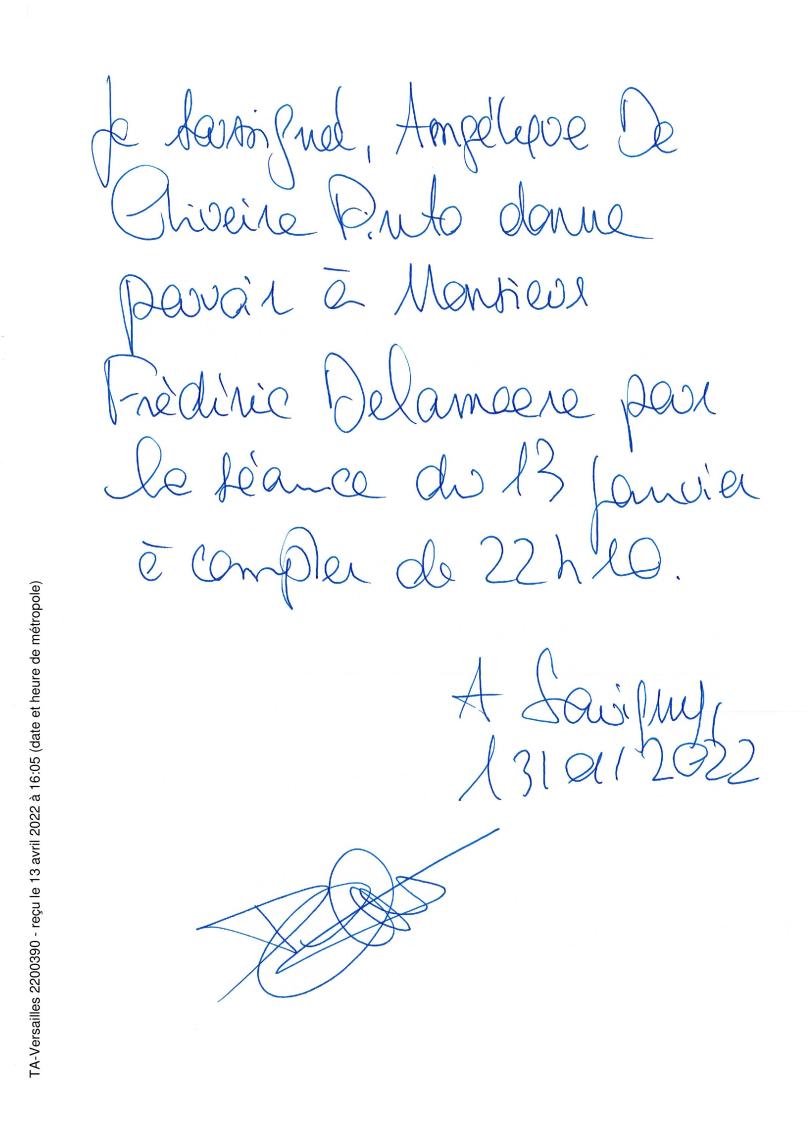 Je soussigné, Angélique De
Oliveira Pinto donne
pouvoir à Monsieur
Frédéric Delameere pour
la séance du 13 janvier
à compter de 22h10.
A Savigny,
13/01/2022
TA-Versailles 2200390 - reçu le 13 avril 2022 à 16:05 (date et heure de métropole)